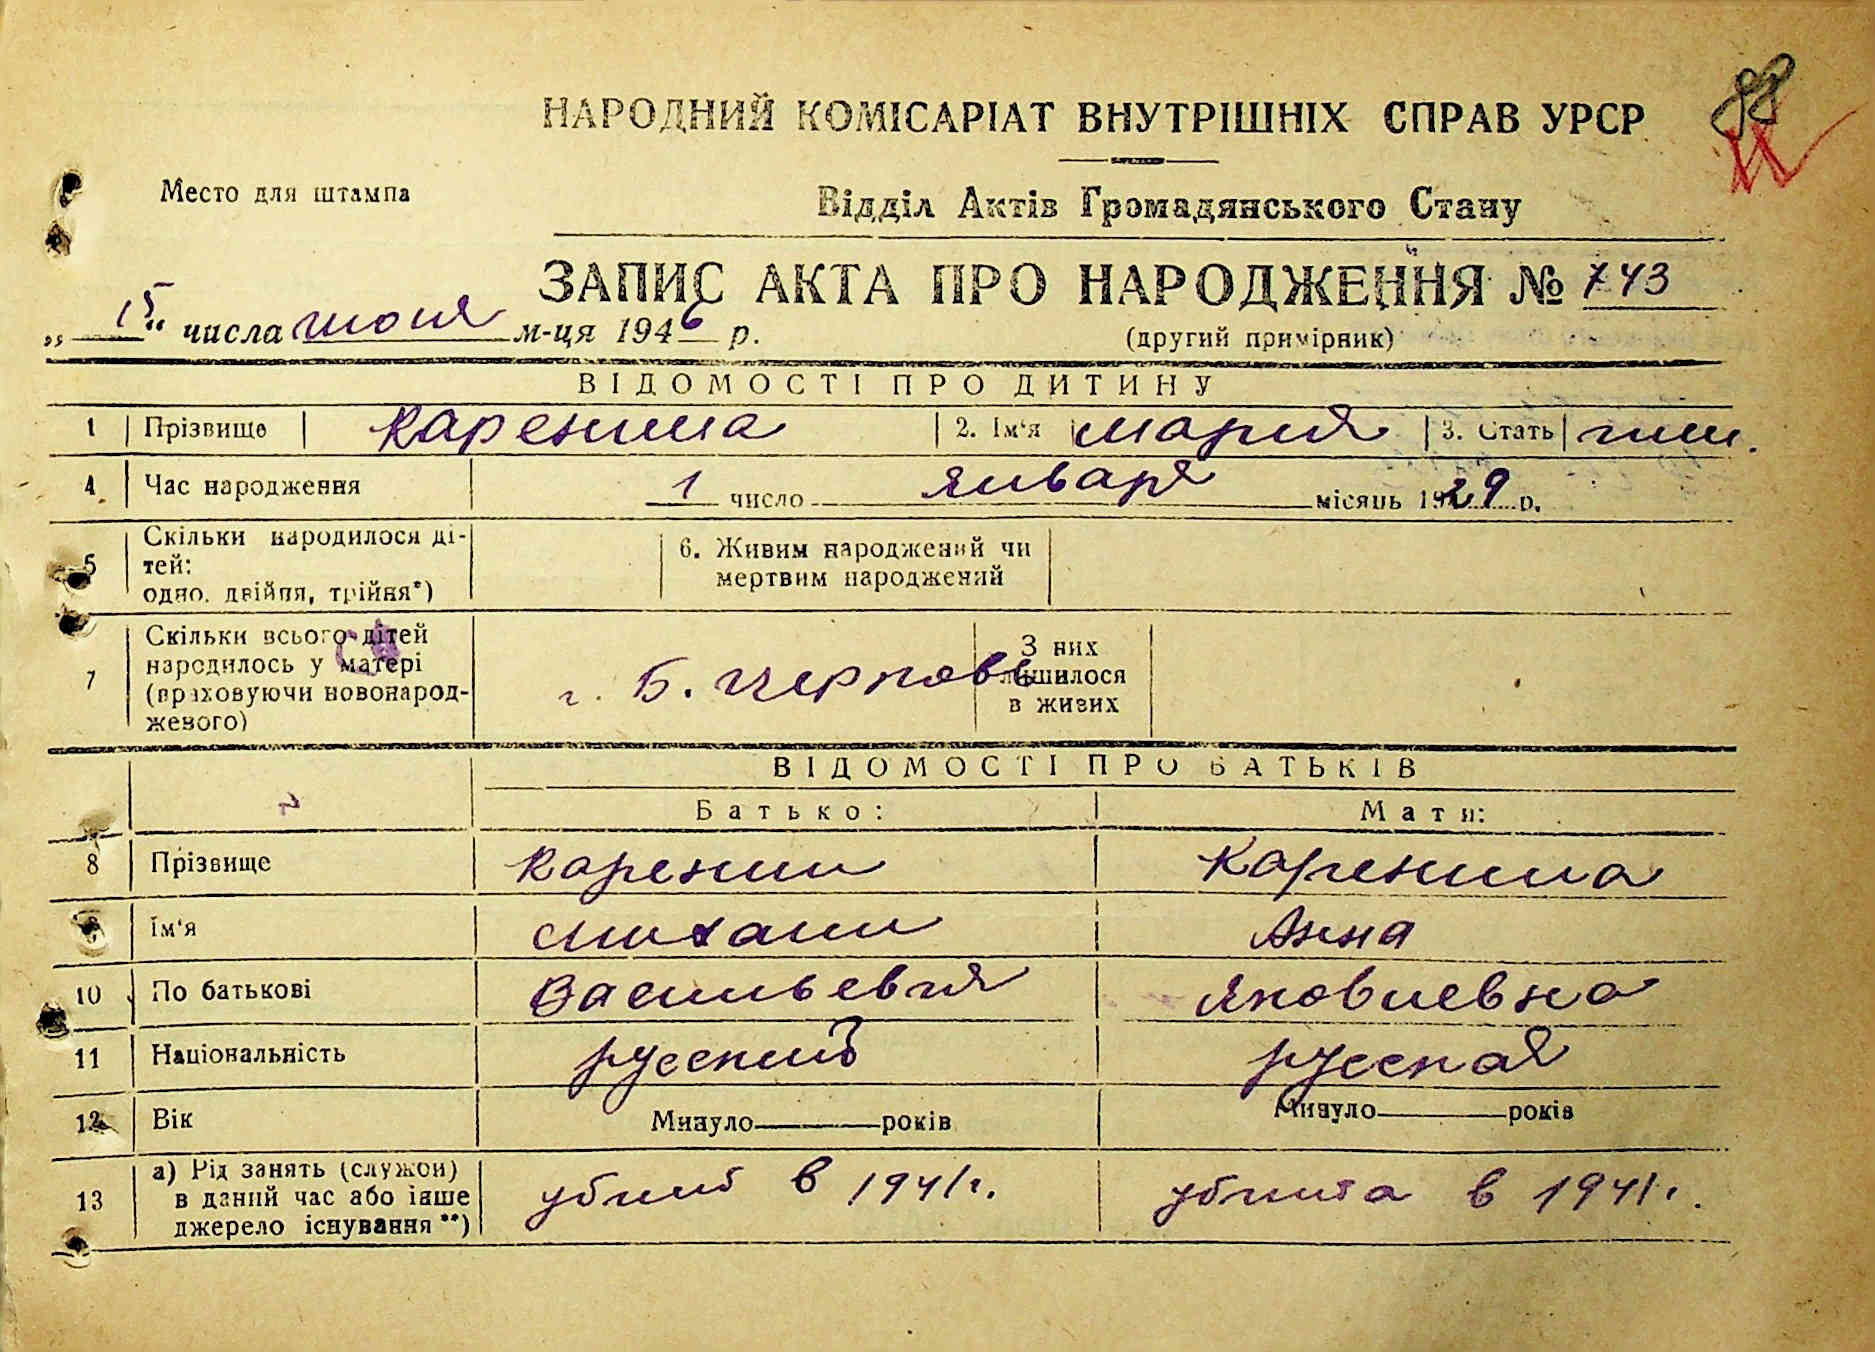 98
НАРОДНИЙ КОМІСАРІАТ ВНУТРІШНІХ СПРАВ УРСР
Место для штампа
Відділ Актів Громадянського Стану
ЗАПИС АКТА ПРО НАРОДЖЕННЯ № 743
„ 15 “ числа июня м-ця 1946 р.
(другий примірник)
ВІДОМОСТІ ПРО ДИТИНУ
1 Прізвище Каренина 2. Ім'я Мария 3. Стать жен.
4 Час народження 1 число Января місяць 1929 р.
5 Скільки народилося ді-
тей:
одно, двійня, трійня*)
6. Живим народжений чи
мертвим народжений
7 Скільки всього дітей
народилось у матері
(враховуючи новонарод-
женого)
г. Б. Церковь
З них
лишилося
в живих
ВІДОМОСТІ ПРО БАТЬКІВ
Батько: Мати:
8 Прізвище Каренин Каренина
9 Ім'я Михаил Анна
10 По батькові Васильевич Яковлевна
11 Національність русский русская
12 Вік Минуло років Минуло років
13 а) Рід занять (служби)
в даний час або інше
джерело існування**)
убит в 1941 г. убита в 1941 г.